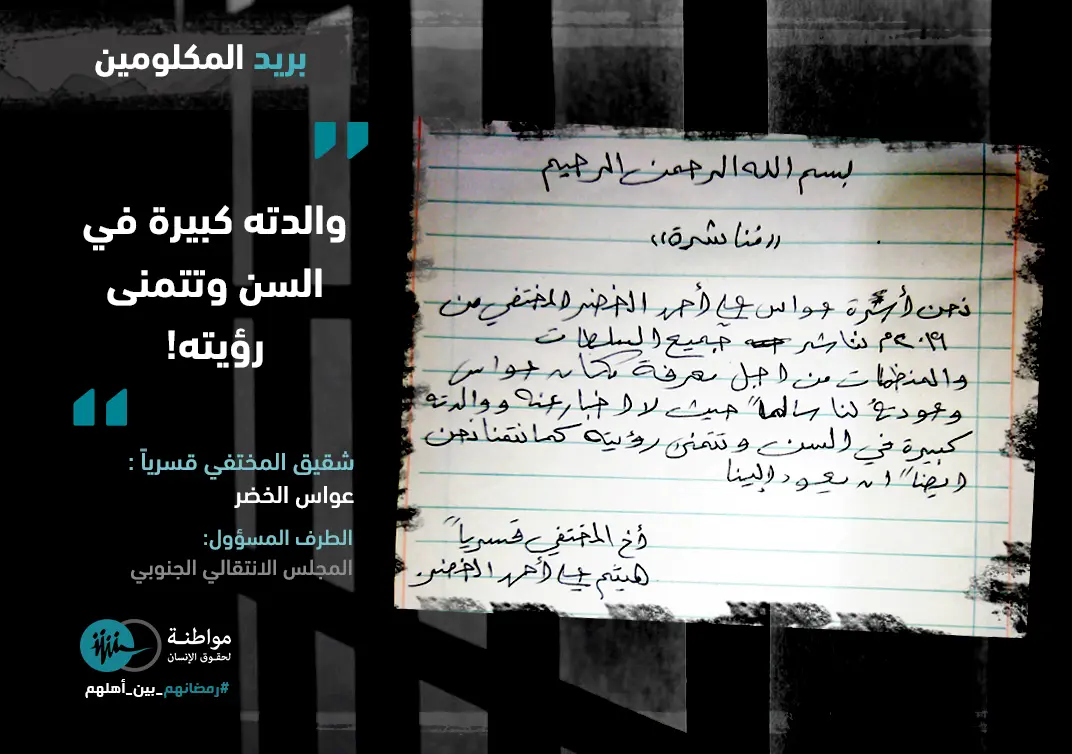 بريد المكلومين
والدته كبيرة في
السن وتتمنى
رؤيته!
شقيق المختفي قسرياً :
عواس الخضر
الطرف المسؤول:
المجلس الانتقالي الجنوبي
مواطنة
لحقوق الإنسان
#رمضانهم_بين_أهلهم
بسم الله الرحمن الرحيم
((مناشرة))
نحن أسرة عواس علي أحمد الخضر المختفي من
م نناشر جميع السلطات
والمنظمات من اجل معرفة مكان عواس
وعودته لنا سالماً حيث لا اخبار عنه ووالدته
كبيرة في السن وتتمنى رؤيته كما نحن
ايضاً ان يعود إلينا
أخ المختفي قسرياً
هيثم علي أحمد الخضر.